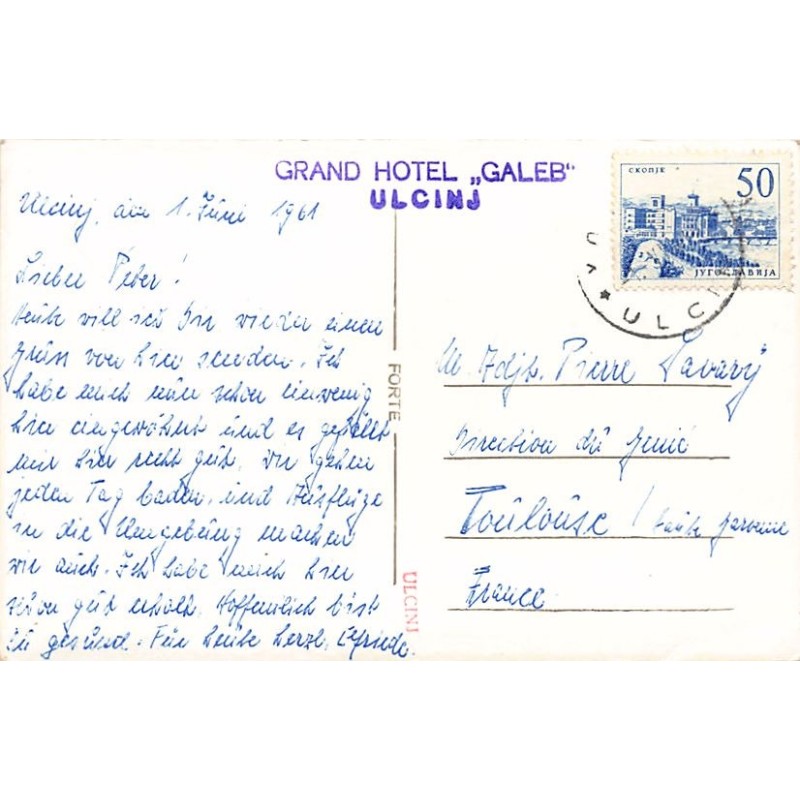 GRAND HOTEL „GALEB“
ULCINJ
Ulcinj, den 1. Juni 1961
Lieber Peter!
Heute will ich Dir wieder einen
Gruss von hier senden. Ich
habe mich nun schon einwenig
hier eingewöhnt und es gefällt
mir hier recht gut. Wir gehen
jeden Tag baden, und Ausflüge
in die Umgebung machen
wir auch. Ich habe mich hier
schon gut erholt. Hoffentlich bist
Du gesund. Für heute herzl. Elfriede.
FORTE
ULCINJ
СКОПЈЕ
50
ЈУГОСЛАВИЈА
ULCI
M. Adj. Pierre Savary
Direction du Genie
Toulouse / Haute Garonne
France